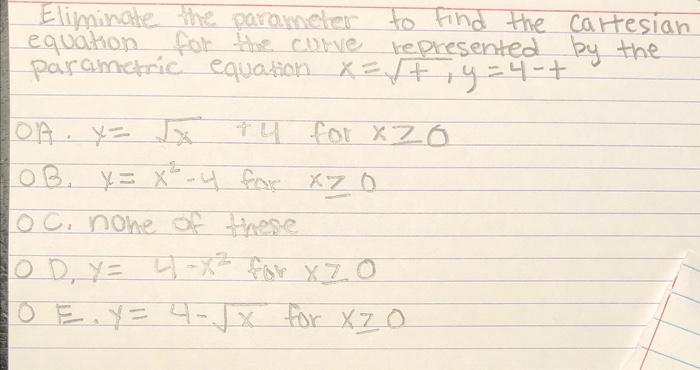 Eliminate the parameter to find the cartesian
equation for the curve represented by the
parametric equation x=√t, y=4-t
O A. y= √x +4 for x≥0
O B. y= x²-4 for x≥0
O C. none of these
O D. y= 4-x² for x≥0
O E. y= 4-√x for x≥0